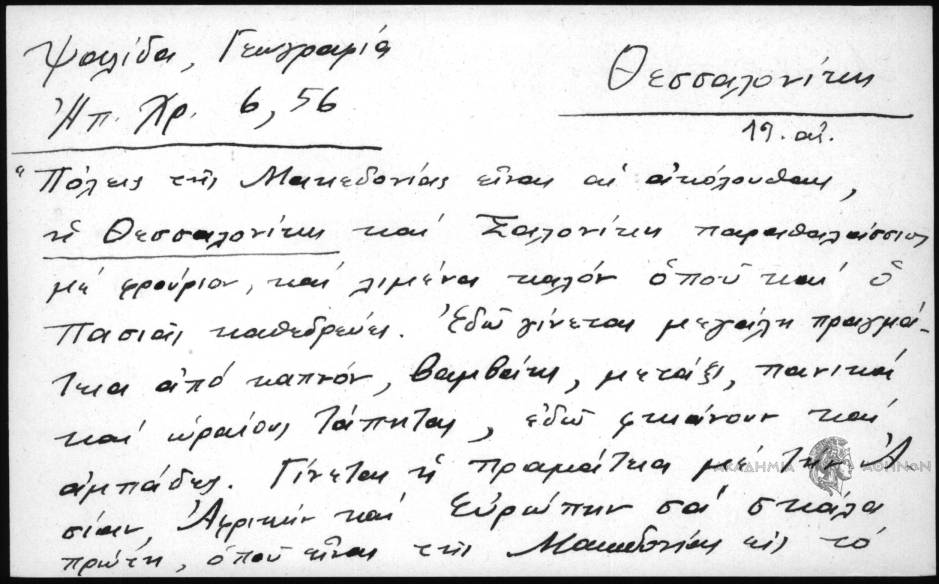 Ψαλίδα, Γεωγραφία
Ἠπ. Χρ. 6, 56
Θεσσαλονίκη
19. αἰ.
"Πόλεις τῆς Μακεδονίας εἶναι αἱ ἀκόλουθαι,
ἡ Θεσσαλονίκη καί Σαλονίκη παραθαλάσσιος
μέ φρούριον, καί λιμένα καλόν ὁποῦ καί ὁ
Πασιᾶς καθεδρεύει. Ἐδῶ γίνεται μεγάλη πραγμά-
τεια ἀπό καπνόν, βαμβάκι, μετάξι, πανικά
καί ὡραίους τάπητας, ἐδῶ φκιάνουν καί
ἀμπάδες. Γίνεται ἡ πραμάτεια μέ τήν Ἀ-
σίαν, Ἀφρικήν καί Εὐρώπην σά σκάλα
πρώτη, ὁποῦ εἶναι τῆς Μακεδονίας εἰς τό
ΑΚΑΔΗΜΙΑ ΑΘΗΝΩΝ